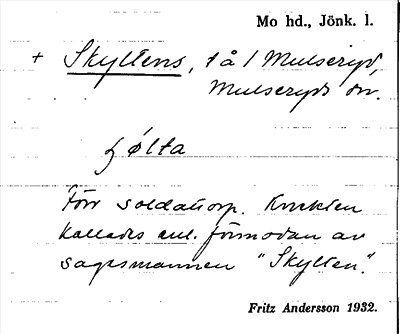 Mo hd., Jönk. l.
+ Skyltens, t å l Mulseryd,
Mulseryds sn.
ỏ̈lta
Förr soldattorp. Knekten
kallades enl. förmodan av
sagesmannen "Skylten."
Fritz Andersson 1932.